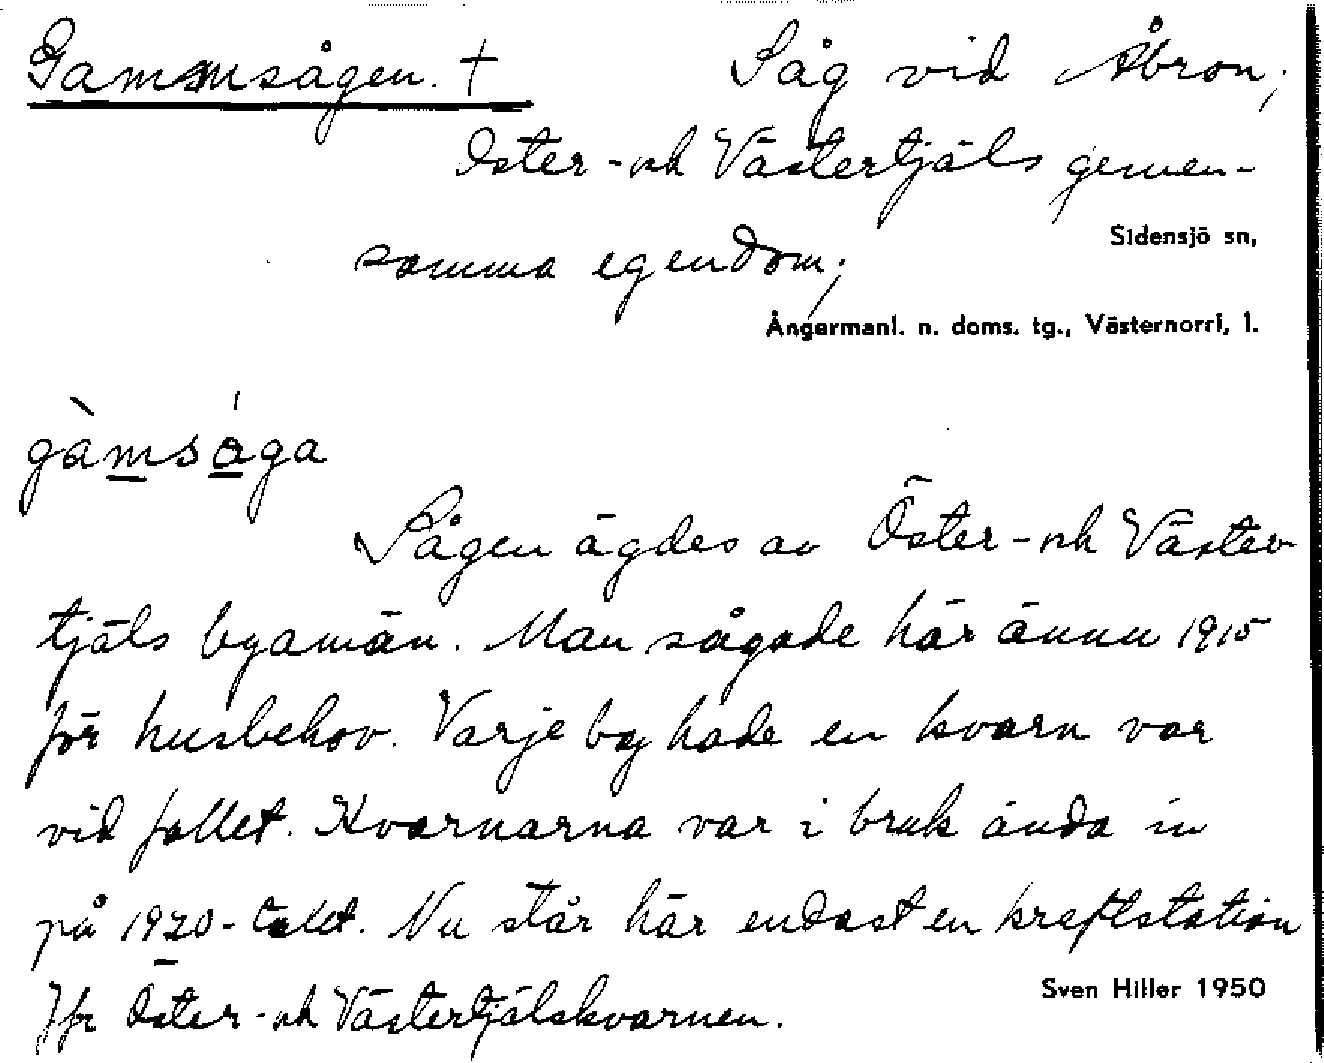 Gammsågen. † Såg vid Åbron;
Öster- och Västertjäls gemen-
Sidensjö sn,
samma egendom;
Ångermanl. n. doms. tg., Västernorrl, l.
gàmsá̊ga
Sågen ägdes av Öster- och Väster
tjäls byamän. Man sågade här ännu 1915
för husbehov. Varje by hade en kvarn var
vid fallet. Kvarnarna var i bruk ända in
på 1920-talet. Nu står här endast en kraftstation
Sven Hiller 1950
Jfr Öster- och Västertjälskvarnen.